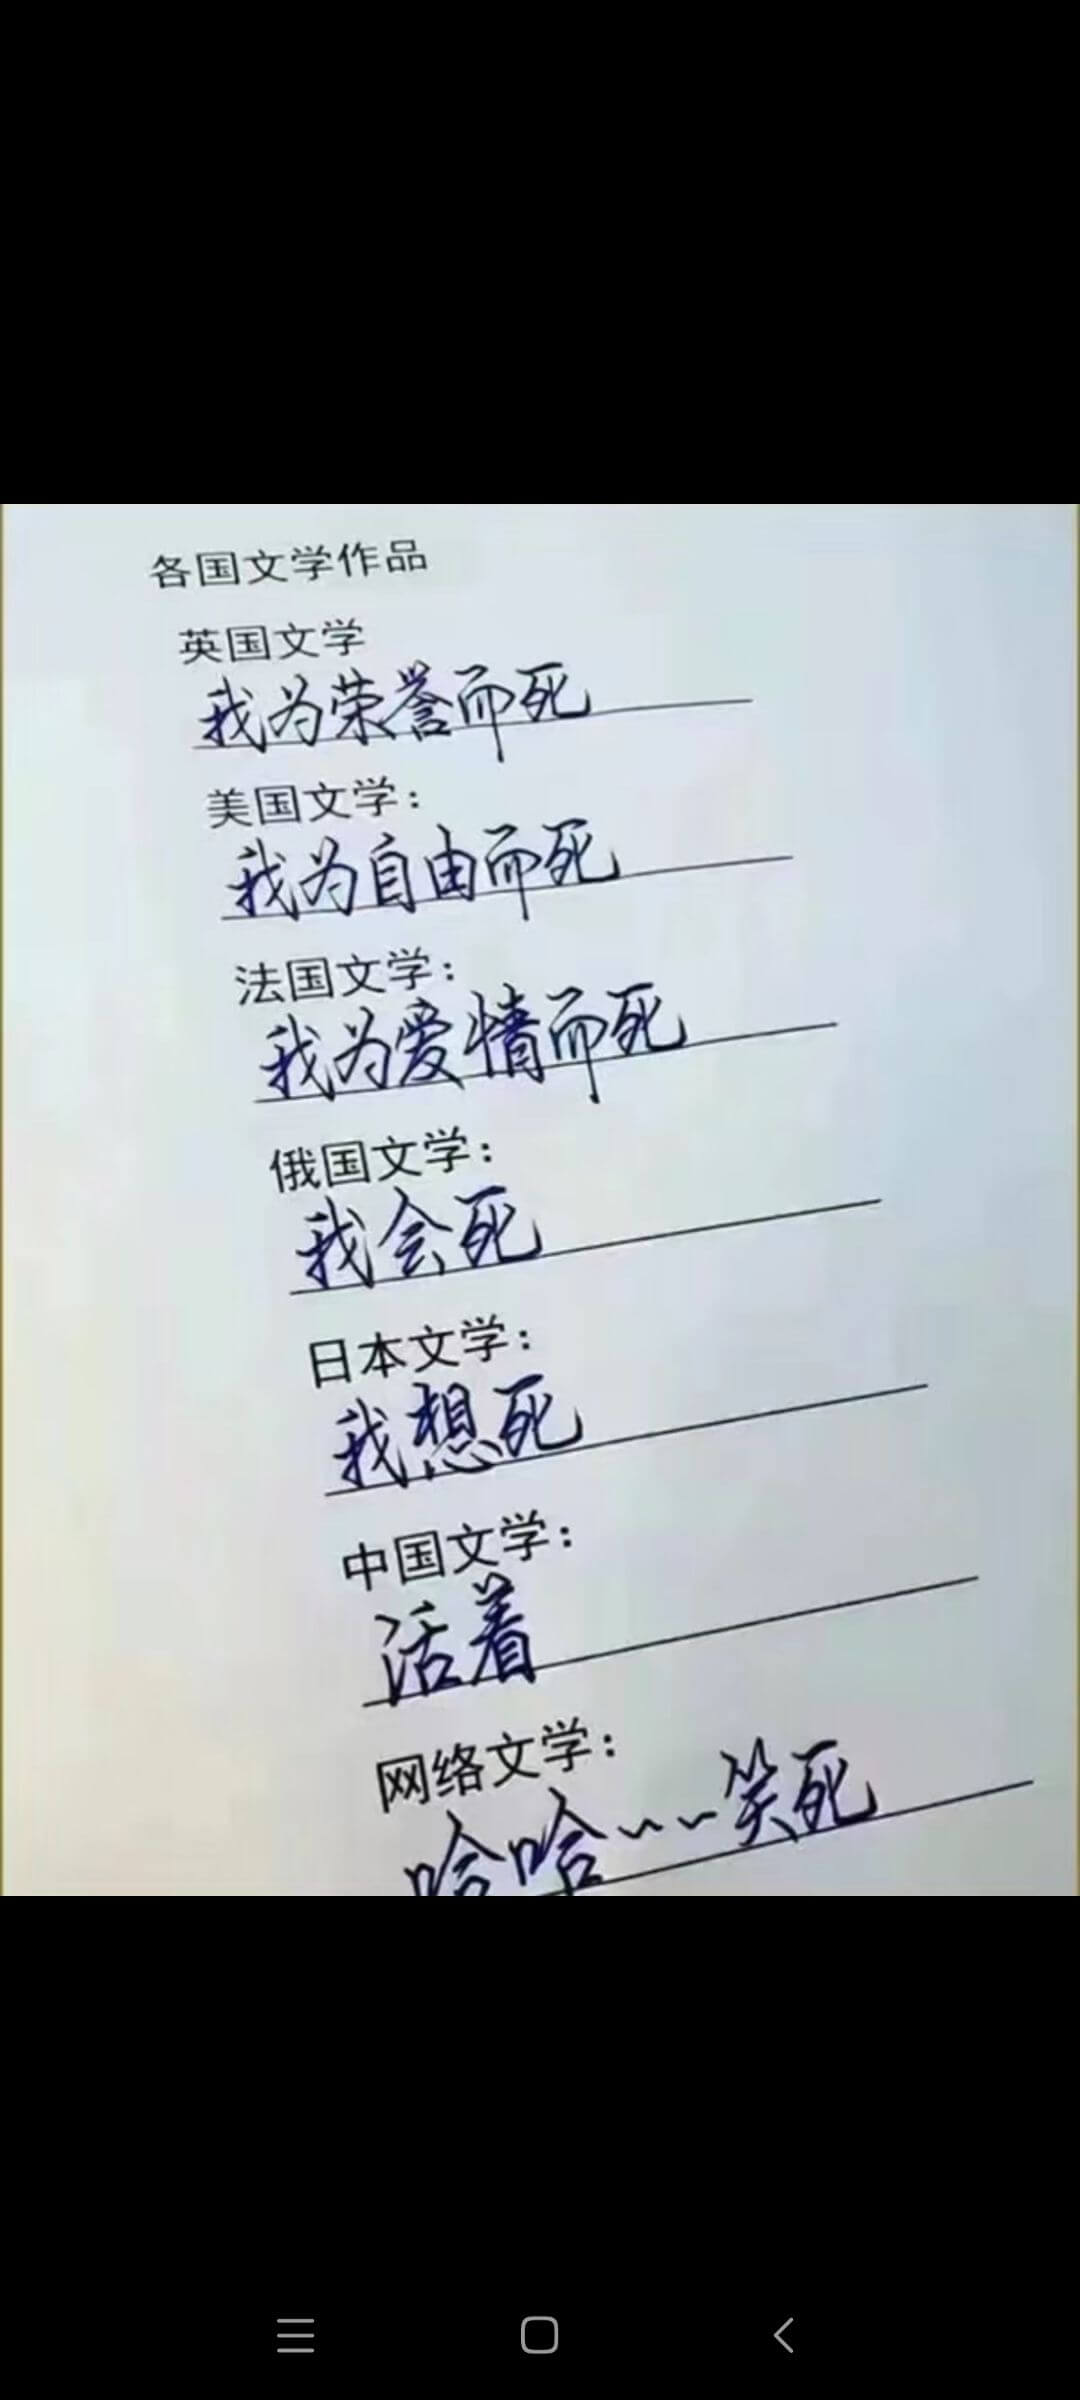 各国文学作品
英国文学
我为荣誉而死
美国文学：
我为自由而死
法国文学：
我为爱情而死
俄国文学：
我会死
日本文学：
我想死
中国文学：
活着
网络文学：
哈哈~~笑死